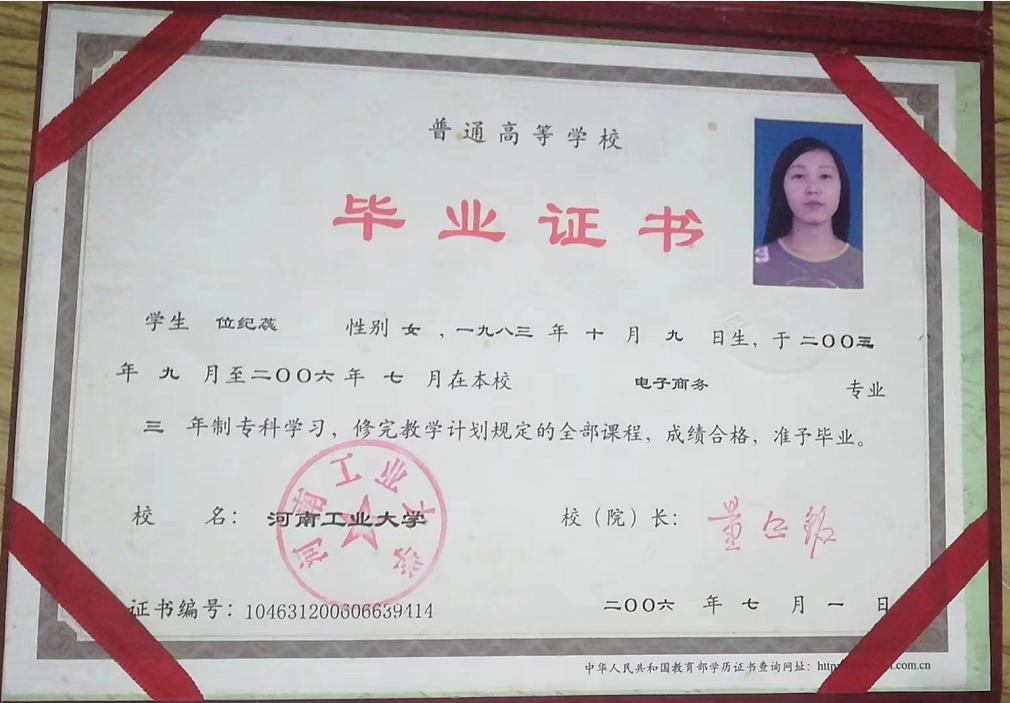 普通高等学校
毕业证书
学生 位纪蕊 性别 女 ，一九八三 年 十 月 九 日生，于 二〇〇三
年 九 月至二〇〇六 年 七 月在本校 电子商务 专业
三 年制专科学习，修完教学计划规定的全部课程，成绩合格，准予毕业。
河南工业大学
校 名： 河南工业大学 校（院）长：
证书编号：104631200606639414 二〇〇六 年 七 月 一 日
中华人民共和国教育部学历证书查询网址： http .com.cn